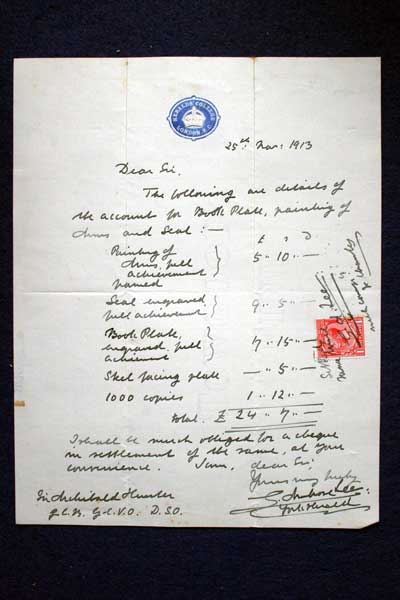 HERALDS' COLLEGE
LONDON E.C.
25th Nov: 1913
Dear Sir,
The following are details of
the account for Book Plate, painting of
Arms and Seal :—
£ s D
Painting of
Arms, full
achievement
framed
5 " 10 " —
Seal engraved
full achievement
9 " 5 " —
Book Plate,
engraved, full
achievement
7 " 15 " —
Steel facing plate
— " 5 " —
1000 copies
1 " 12 " —
Total. £ 24 " 7 " —
I shall be much obliged for a cheque
in settlement of the same, at your
convenience. I am, dear Sir,
Yours very truly
G. Ambrose Lee:
York Herald
Sir Archibald Hunter
G.C.B. G.C.V.O. D.S.O.
Lee
with compliments